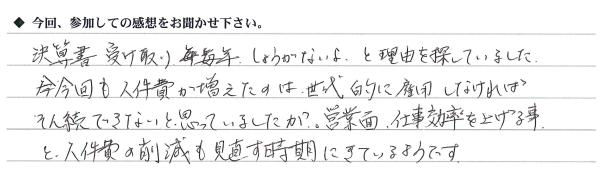 ◆ 今回、参加しての感想をお聞かせ下さい。
決算書 受け取り 毎年、しょうがないよ、と理由を探していました。
今回も人件費が増えたのは、世代的に雇用しなければ
そん続できないと思っていましたが、営業面、仕事効率を上げる事
と、人件費の削減も見直す時期にきているようです